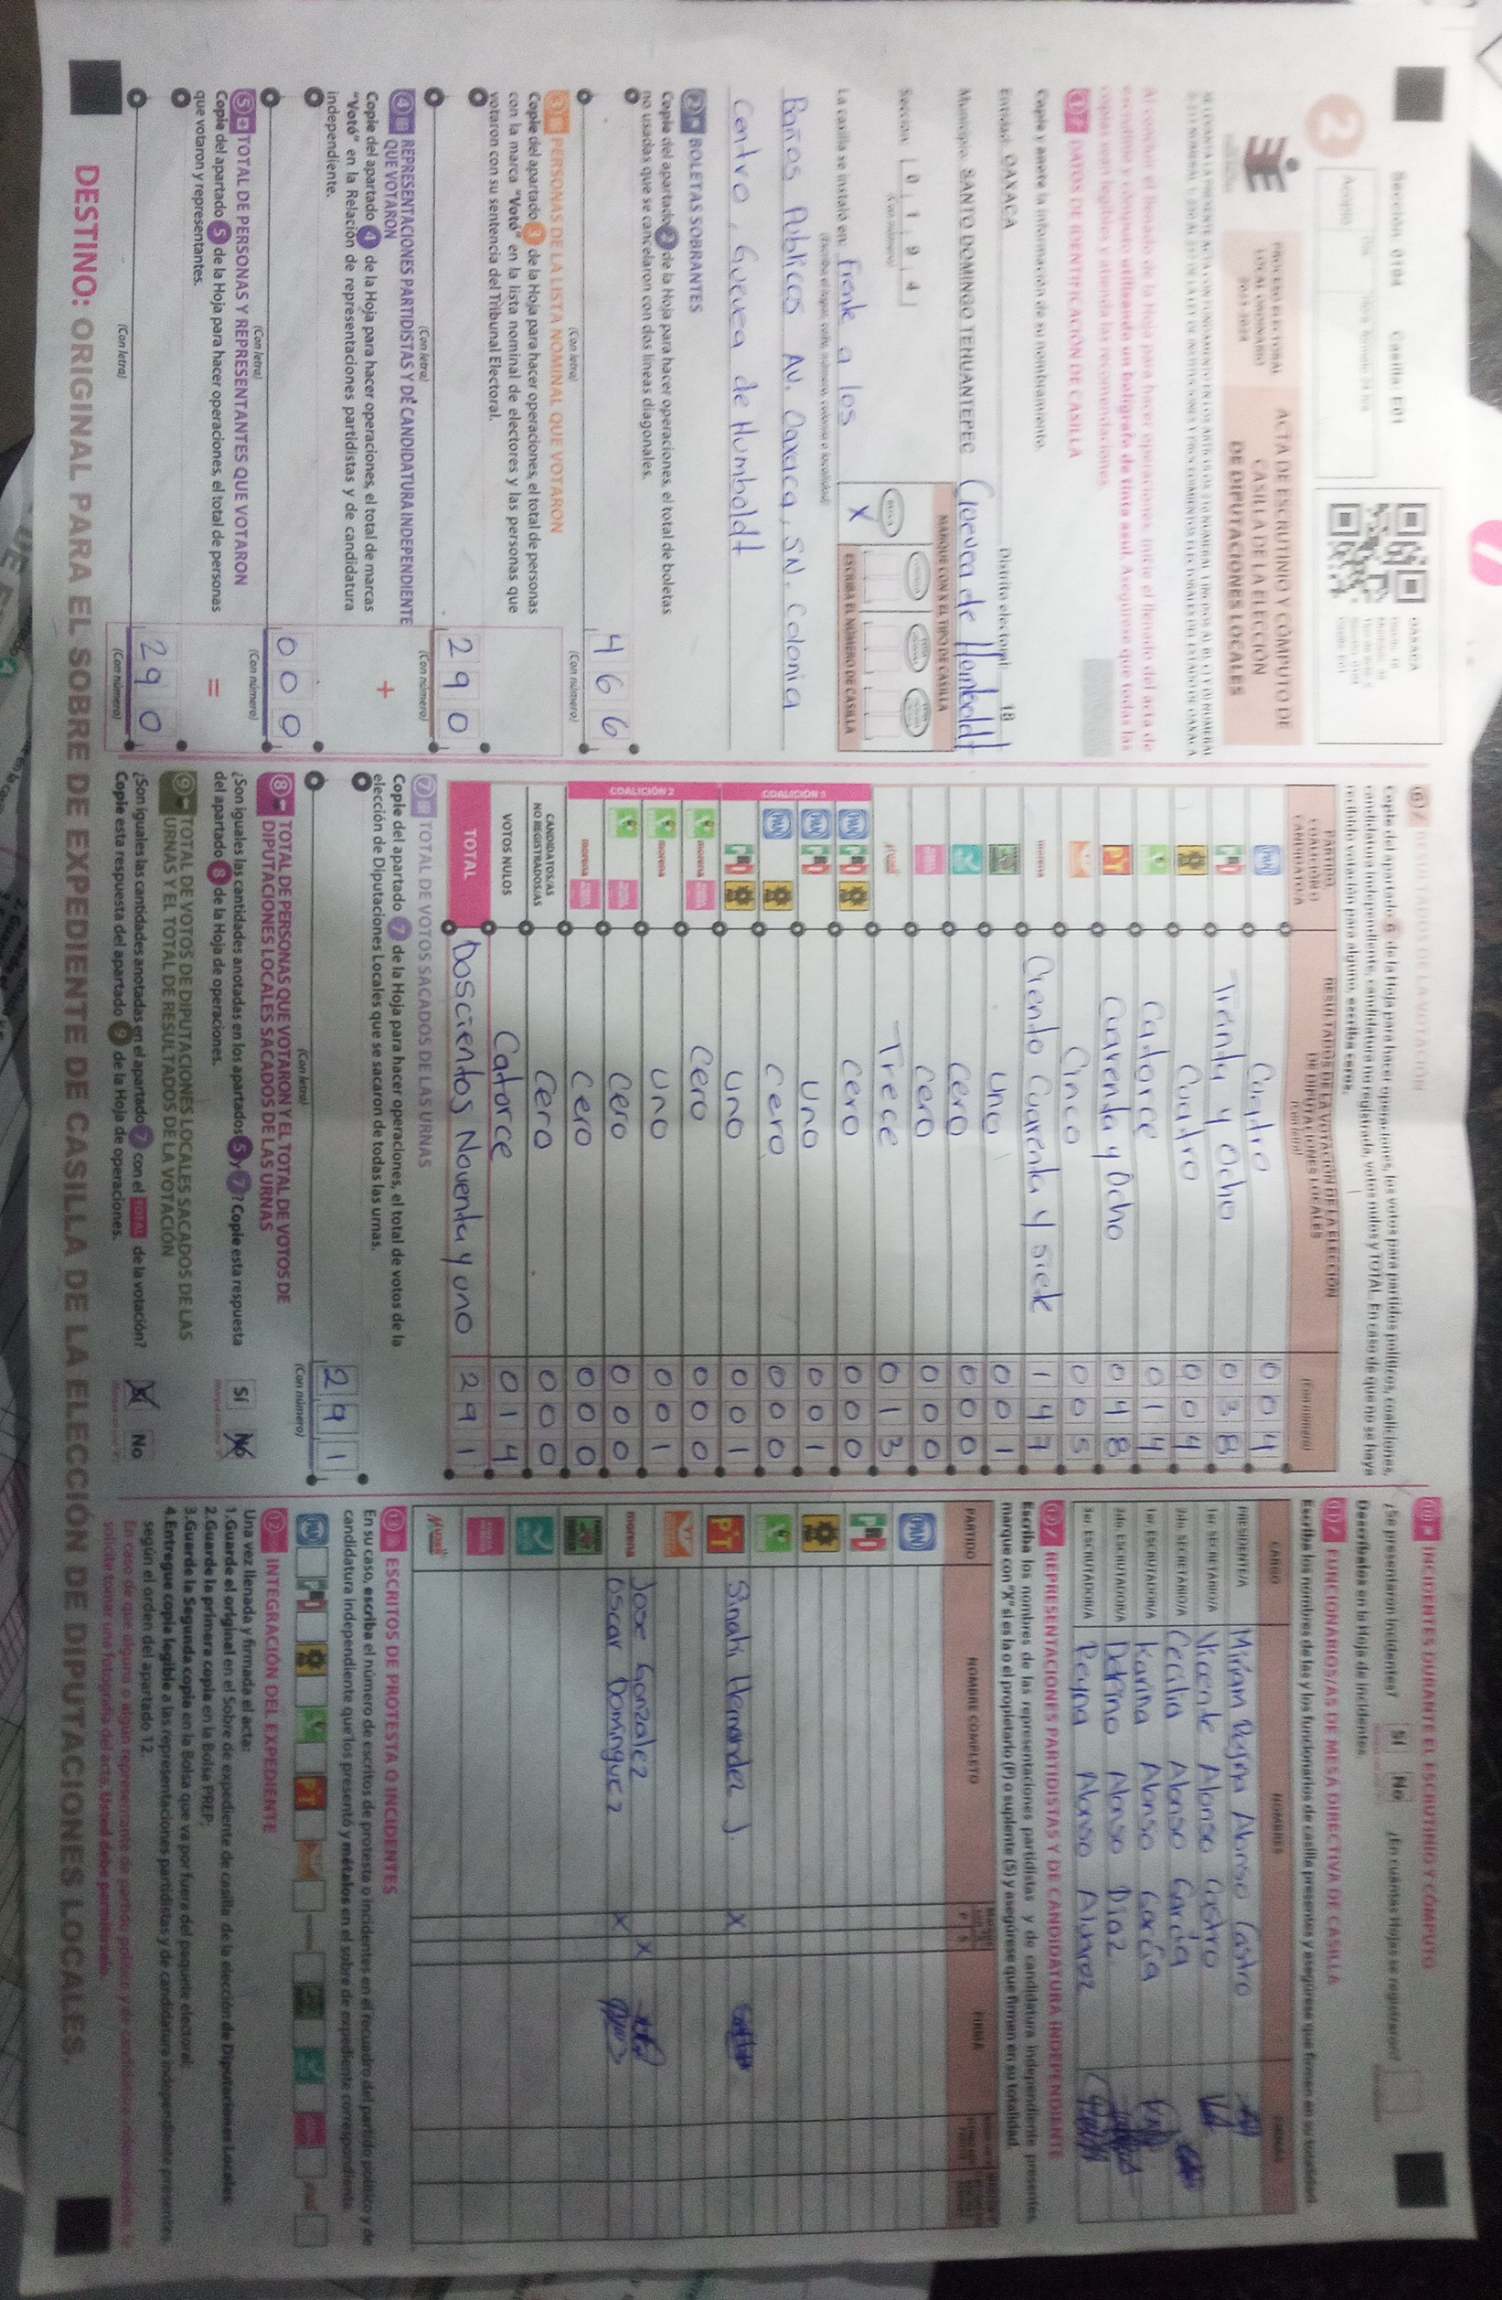 Sección: 0194 Casilla: E01
OAXACA
2
PROCESO ELECTORAL
LOCAL ORDINARIO
2023-2024
ACTA DE ESCRUTINIO Y CÓMPUTO DE
CASILLA DE LA ELECCIÓN
DE DIPUTACIONES LOCALES
Al concluir el llenado de la Hoja para hacer operaciones, inicie el llenado del acta de
escrutinio y cómputo utilizando un bolígrafo de tinta azul. Asegúrese que todas las
copias sean legibles y atienda las recomendaciones.
1 DATOS DE IDENTIFICACIÓN DE CASILLA
Copie y anote la información de su nombramiento.
Entidad: OAXACA Distrito electoral 18
Municipio: SANTO DOMINGO TEHUANTEPEC Guevea de Humboldt
Sección: 0 1 9 4
(Con número)
MARQUE CON X EL TIPO DE CASILLA
X
ESCRIBA EL NÚMERO DE CASILLA
La casilla se instaló en: Frente a los
(Escriba el lugar, calle, número, colonia o localidad)
Baños Publicos Av. Oaxaca, SN. Colonia
Centro, Guevea de Humboldt
2 BOLETAS SOBRANTES
Copie del apartado 2 de la Hoja para hacer operaciones, el total de boletas
no usadas que se cancelaron con dos líneas diagonales.
466
(Con letra) (Con número)
3 PERSONAS DE LA LISTA NOMINAL QUE VOTARON
Copie del apartado 3 de la Hoja para hacer operaciones, el total de personas
con la marca "Votó" en la lista nominal de electores y las personas que
votaron con su sentencia del Tribunal Electoral.
290
(Con letra) (Con número)
4 REPRESENTACIONES PARTIDISTAS Y DE CANDIDATURA INDEPENDIENTE
QUE VOTARON +
Copie del apartado 4 de la Hoja para hacer operaciones, el total de marcas
"Votó" en la Relación de representaciones partidistas y de candidatura
independiente.
000
(Con letra) (Con número)
5 TOTAL DE PERSONAS Y REPRESENTANTES QUE VOTARON
Copie del apartado 5 de la Hoja para hacer operaciones, el total de personas =
que votaron y representantes.
290
(Con letra) (Con número)
6 RESULTADOS DE LA VOTACIÓN
Copie del apartado 6 de la Hoja para hacer operaciones, los votos para partidos políticos, coaliciones,
candidatura independiente, candidatura no registrada, votos nulos y TOTAL. En caso de que no se haya
recibido votación para alguno, escriba ceros.
PARTIDO, COALICIÓN O CANDIDATO/A
RESULTADOS DE LA VOTACIÓN DE LA ELECCIÓN
DE DIPUTACIONES LOCALES
(Con letra) (Con número)
PAN Cuatro 004
PRI Treinta y Ocho 038
Cuatro 004
Catorce 014
PT Cuarenta y Ocho 048
Cinco 005
morena Ciento Cuarenta y siete 147
Uno 001
Cero 000
Cero 000
Trece 013
COALICIÓN 1
PAN PRI Cero 000
PAN PRI Uno 001
PAN Cero 000
PRI Uno 001
COALICIÓN 2
morena Cero 000
morena Uno 001
Cero 000
morena Cero 000
CANDIDATOS/AS
NO REGISTRADOS/AS Cero 000
VOTOS NULOS Catorce 014
TOTAL Doscientos Noventa y uno 291
7 TOTAL DE VOTOS SACADOS DE LAS URNAS
Copie del apartado 7 de la Hoja para hacer operaciones, el total de votos de la
elección de Diputaciones Locales que se sacaron de todas las urnas.
291
(Con letra) (Con número)
8 TOTAL DE PERSONAS QUE VOTARON Y EL TOTAL DE VOTOS DE
DIPUTACIONES LOCALES SACADOS DE LAS URNAS
¿Son iguales las cantidades anotadas en los apartados 5 y 7? Copie esta respuesta
del apartado 8 de la Hoja de operaciones.
Sí No
9 TOTAL DE VOTOS DE DIPUTACIONES LOCALES SACADOS DE LAS
URNAS Y EL TOTAL DE RESULTADOS DE LA VOTACIÓN
¿Son iguales las cantidades anotadas en el apartado 7 con el TOTAL de la votación?
Copie esta respuesta del apartado 9 de la Hoja de operaciones.
Sí No
10 INCIDENTES DURANTE EL ESCRUTINIO Y CÓMPUTO
¿Se presentaron incidentes? Sí No ¿En cuántas Hojas se registraron?
Descríbalos en la Hoja de incidentes
11 FUNCIONARIOS/AS DE MESA DIRECTIVA DE CASILLA
Escriba los nombres de las y los funcionarios de casilla presentes y asegúrese que firmen en su totalidad.
CARGO NOMBRES FIRMA
PRESIDENTE/A Miriam Reyna Alonso Castro
1er SECRETARIO/A Vicente Alonso Castro
2do. SECRETARIO/A Cecilia Alonso Garcia
1er ESCRUTADOR/A Karina Alonso Garcia
2do. ESCRUTADOR/A Delfino Alonso Diaz
3er ESCRUTADOR/A Reyna Alonso Alvarez
12 REPRESENTACIONES PARTIDISTAS Y DE CANDIDATURA INDEPENDIENTE
Escriba los nombres de las representaciones partidistas y de candidatura independiente presentes,
marque con "X" si es la o el propietario (P) o suplente (S) y asegúrese que firmen en su totalidad.
PARTIDO NOMBRE COMPLETO FIRMA
PAN
PRI
PT Sinahi Hernandez J. X
morena Jose Gonzalez X
Oscar Dominguez X
13 ESCRITOS DE PROTESTA O INCIDENTES
En su caso, escriba el número de escritos de protesta o incidentes en el recuadro del partido político y de
candidatura independiente que los presentó y métalos en el sobre de expediente correspondiente.
12 INTEGRACIÓN DEL EXPEDIENTE
Una vez llenada y firmada el acta:
1.Guarde el original en el Sobre de expediente de casilla de la elección de Diputaciones Locales;
2.Guarde la primera copia en la Bolsa PREP;
3.Guarde la Segunda copia en la Bolsa que va por fuera del paquete electoral;
4.Entregue copia legible a las representaciones partidistas y de candidatura independiente presentes,
según el orden del apartado 12.
DESTINO: ORIGINAL PARA EL SOBRE DE EXPEDIENTE DE CASILLA DE LA ELECCIÓN DE DIPUTACIONES LOCALES.